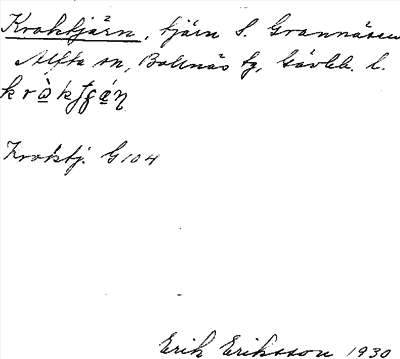 Kroktjärn, tjärn S. Grannäsen
Alfta sn, Bollnäs tg, Gävleb. l.
Kroktj. G 104
Erik Eriksson 1930